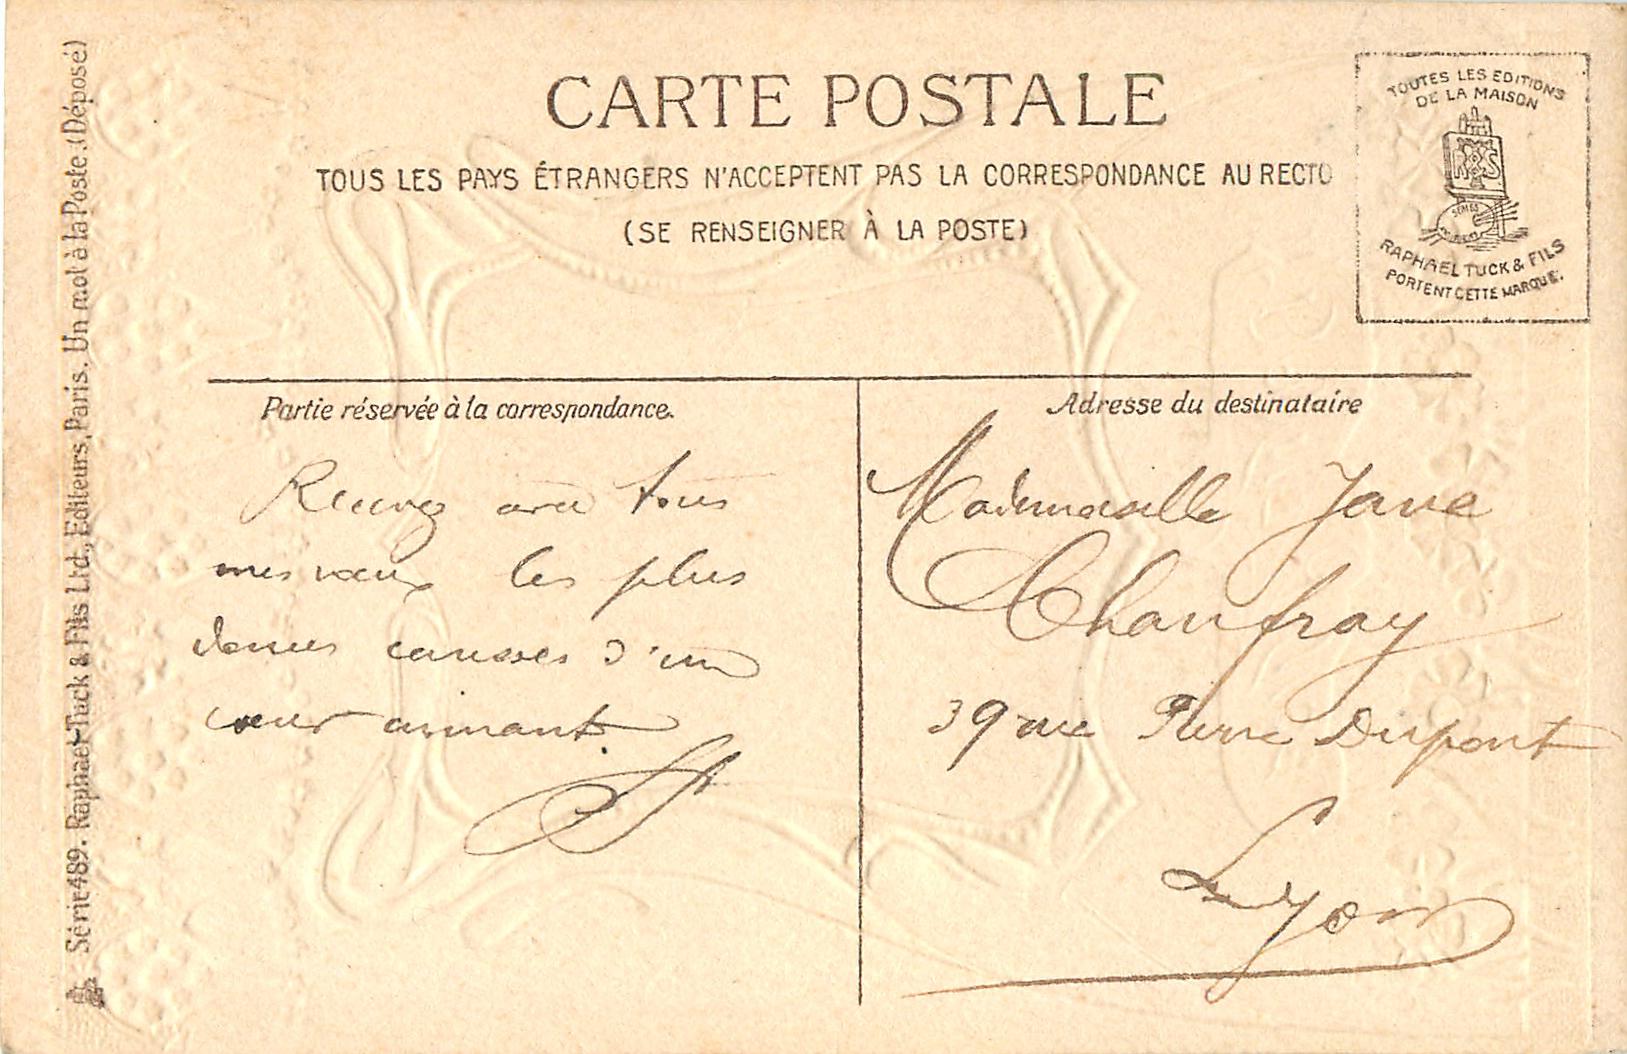 CARTE POSTALE
TOUS LES PAYS ÉTRANGERS N'ACCEPTENT PAS LA CORRESPONDANCE AU RECTO
(SE RENSEIGNER À LA POSTE)
TOUTES LES EDITIONS
DE LA MAISON
RAPHAEL TUCK & FILS
PORTENT CETTE MARQUE.
Série 489. Raphael Tuck & Fils Ltd., Editeurs, Paris. Un mot à la Poste. (Déposé)
Partie réservée à la correspondance.
Recevez avec tous
mes vœux les plus
douces caresses d'un
cœur aimant
Adresse du destinataire
Mademoiselle Jane
Chaufray
39 rue Pierre Dupont
Lyon